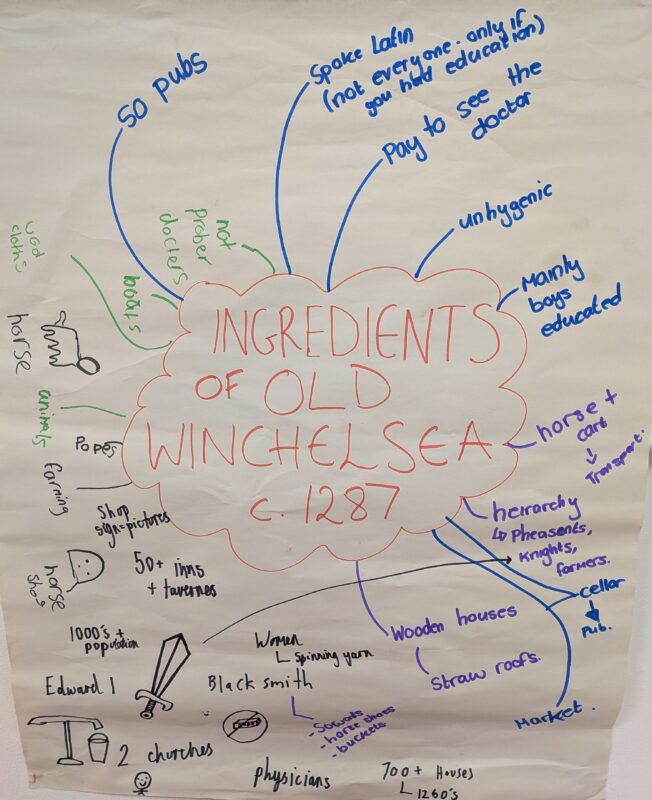 INGREDIENTS
OF OLD
WINCHELSEA
c. 1287
50 pubs
Spoke Latin
(not everyone. only if
you had education)
Pay to see the
doctor
unhygenic
Mainly
boys
educated
horse +
cart
↓
Transport.
heirarchy
↳ Pheasents,
Knights,
farmers.
cellar
↓
Pub.
Market.
Wooden houses
Straw roofs.
not
prober
docters
boats
cloths
horse
animals
Popes
farming
Shop
sign=pictures
50+ inns
+ tavernes
horse
shoes
1000's +
population
Edward 1
2 churches
Women
Spinning yarn
Black smith
- Sowads
- horse shoes
- buckets
physicians
700+ Houses
1280's